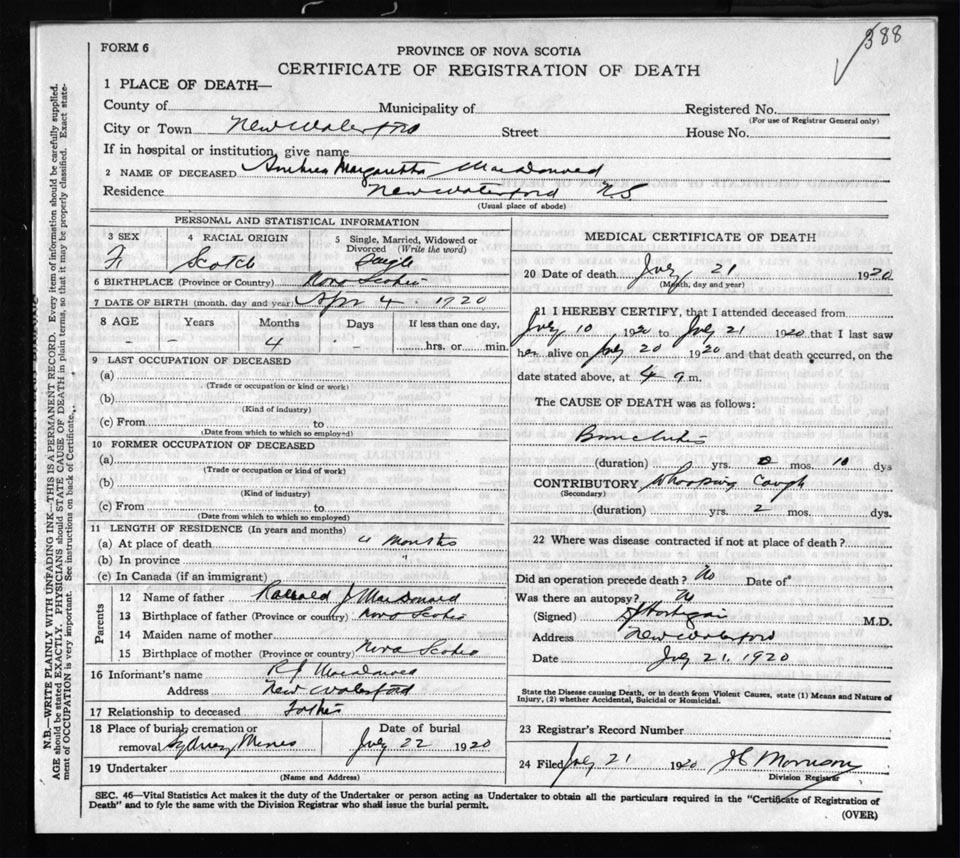 388
FORM 6
PROVINCE OF NOVA SCOTIA
CERTIFICATE OF REGISTRATION OF DEATH
1 PLACE OF DEATH—
County of Municipality of Registered No.
(For use of Registrar General only)
City or Town New Waterford Street House No.
If in hospital or institution, give name
2 NAME OF DECEASED Margaretta MacDonald
Residence New Waterford N.S
(Usual place of abode)
PERSONAL AND STATISTICAL INFORMATION
3 SEX 4 RACIAL ORIGIN 5 Single, Married, Widowed or Divorced (Write the word)
F Scotch Single
6 BIRTHPLACE (Province or Country) Nova Scotia
7 DATE OF BIRTH (month, day and year) Apr 4 1920
8 AGE Years Months Days If less than one day,
- - 4 - hrs. or min.
9 LAST OCCUPATION OF DECEASED
(a)
(Trade or occupation or kind or work)
(b)
(Kind of industry)
(c) From to
(Date from which to which so employed)
10 FORMER OCCUPATION OF DECEASED
(a)
(Trade or occupation or kind of work)
(b)
(Kind of industry)
(c) From to
(Date from which to which so employed)
11 LENGTH OF RESIDENCE (In years and months)
(a) At place of death 4 Months
(b) In province "
(c) In Canada (if an immigrant)
Parents
12 Name of father Ronald J MacDonald
13 Birthplace of father (Province or country) Nova Scotia
14 Maiden name of mother
15 Birthplace of mother (Province or country) Nova Scotia
16 Informant's name R J MacDonald
Address New Waterford
17 Relationship to deceased Father
18 Place of burial, cremation or removal Sydney Mines
Date of burial July 22 1920
19 Undertaker
(Name and Address)
MEDICAL CERTIFICATE OF DEATH
20 Date of death July 21 1920
(Month, day and year)
21 I HEREBY CERTIFY, that I attended deceased from
July 10 1920 to July 21 1920 that I last saw
her alive on July 20 1920 and that death occurred, on the
date stated above, at 4 a m.
The CAUSE OF DEATH was as follows:
Bronchitis
(duration) yrs. mos. 10 dys
CONTRIBUTORY Whooping Cough
(Secondary)
(duration) yrs. 2 mos. dys.
22 Where was disease contracted if not at place of death?
Did an operation precede death? No Date of
Was there an autopsy? No
(Signed) M.D.
Address New Waterford
Date July 21. 1920
State the Disease causing Death, or in death from Violent Causes, state (1) Means and Nature of
Injury, (2) whether Accidental, Suicidal or Homicidal.
23 Registrar's Record Number
24 Filed July 21 1920 Morrison
Division Registrar
SEC. 46—Vital Statistics Act makes it the duty of the Undertaker or person acting as Undertaker to obtain all the particulars required in the "Certificate of Registration of
Death" and to fyle the same with the Division Registrar who shall issue the burial permit.
(OVER)
N.B.—WRITE PLAINLY WITH UNFADING INK—THIS IS A PERMANENT RECORD. Every item of information should be carefully supplied.
AGE should be stated EXACTLY. PHYSICIANS should STATE CAUSE OF DEATH in plain terms, so that it may be properly classified. Exact state-
ment of OCCUPATION is very important. See instructions on back of Certificate.